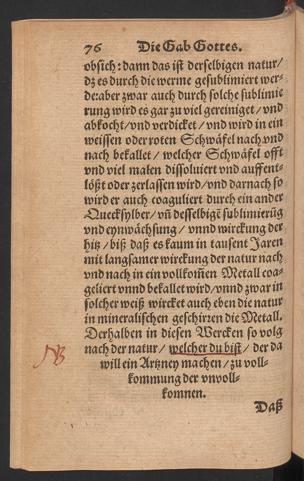 76 Die Gab Gottes.
obsich: dann das ist derselbigen natur/
dz es durch die werme gesublimiert wer-
de: aber zwar auch durch solche sublimie
rung wird es gar zu viel gereiniget/ vnd
abkocht/ vnd verdicket/ vnd wird in ein
weissen oder roten Schwäfel nach vnd
nach bekallet/ welcher Schwäfel offt
vnd viel maten dissoluiert vnd auffent-
lößt oder zerlassen wird/ vnd darnach so
wird er auch coaguliert durch ein ander
Quecksylber/ vñ desselbigẽ sublimierũg
vnd eynwächsung/ vnnd wirckung der
hitz/ biß daß es kaum in tausent Jaren
mit langsamer wirckung der natur nach
vnd nach in ein vollkom̃en Metall coa-
geliert vnnd bekallet wird/ vnnd zwar in
solcher weiß wircket auch eben die natur
in mineralischen geschirren die Metall.
Derhalben in diesen Wercken so volg
nach der natur/ welcher du bist/ der da
NB
will ein Artzney machen/ zu voll-
kommung der vnvoll-
komnen.
Daß